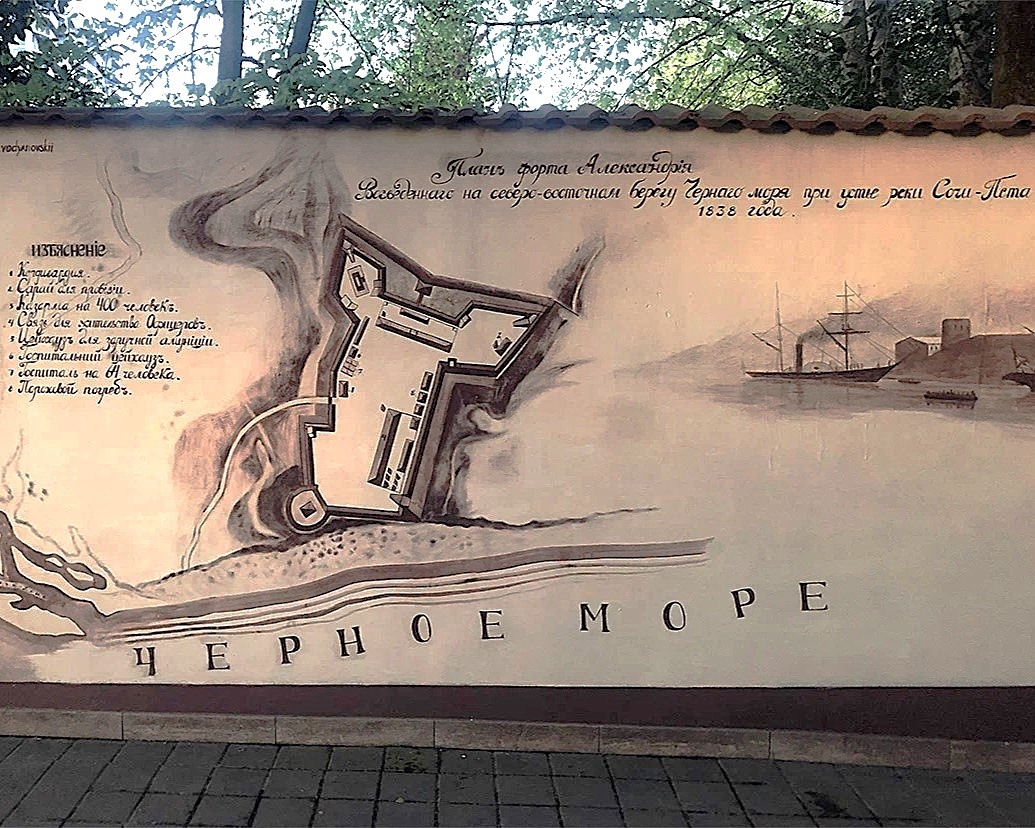 vodyanovskii
Планъ форта Александрія
Возведеннаго на северо-восточнам берегу Чернаго моря при устье реки Сочи-Пста
1838 года.
изъясненіе
1 Кордегардия.
2 Сарай для провизіи.
3 Казарма на 400 человекъ.
4 Связь для жительства Офицеровъ.
5 Цейхаузъ для амуніции.
6 Госпитальний цейхаузъ.
7 Госпиталь на человека.
Пороховой погребъ.
ЧЕРНОЕ МОРЕ